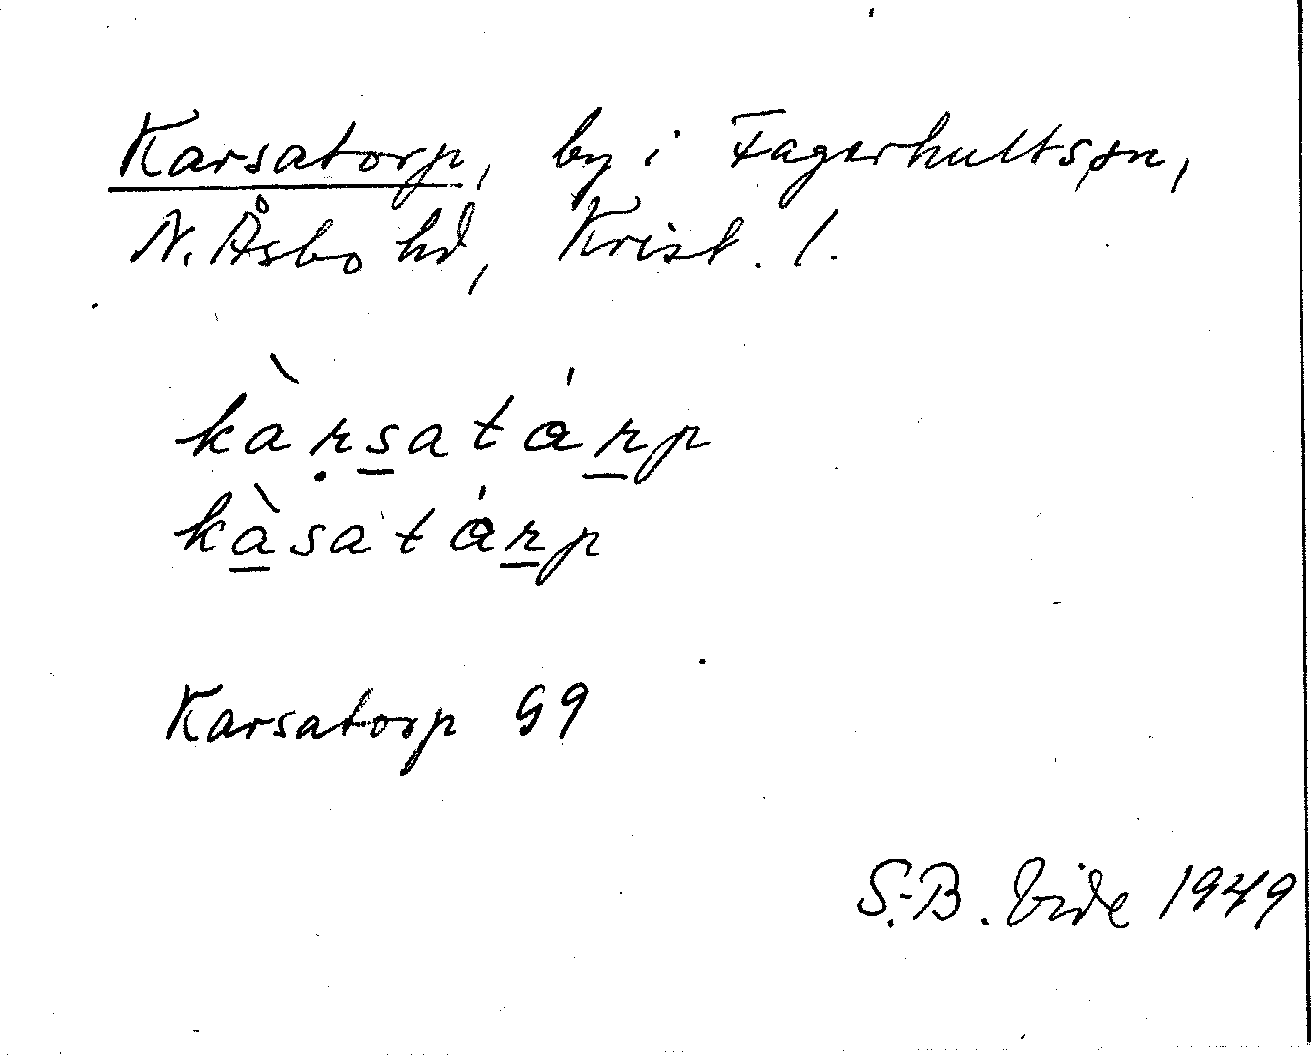 Karsatorp, by i Fagerhults sn,
N. Åsbo hd, Krist. l.
kàṛs̱atáṟp
kà̱satáṟp
Karsatorp G9
S.-B. Vide 1949